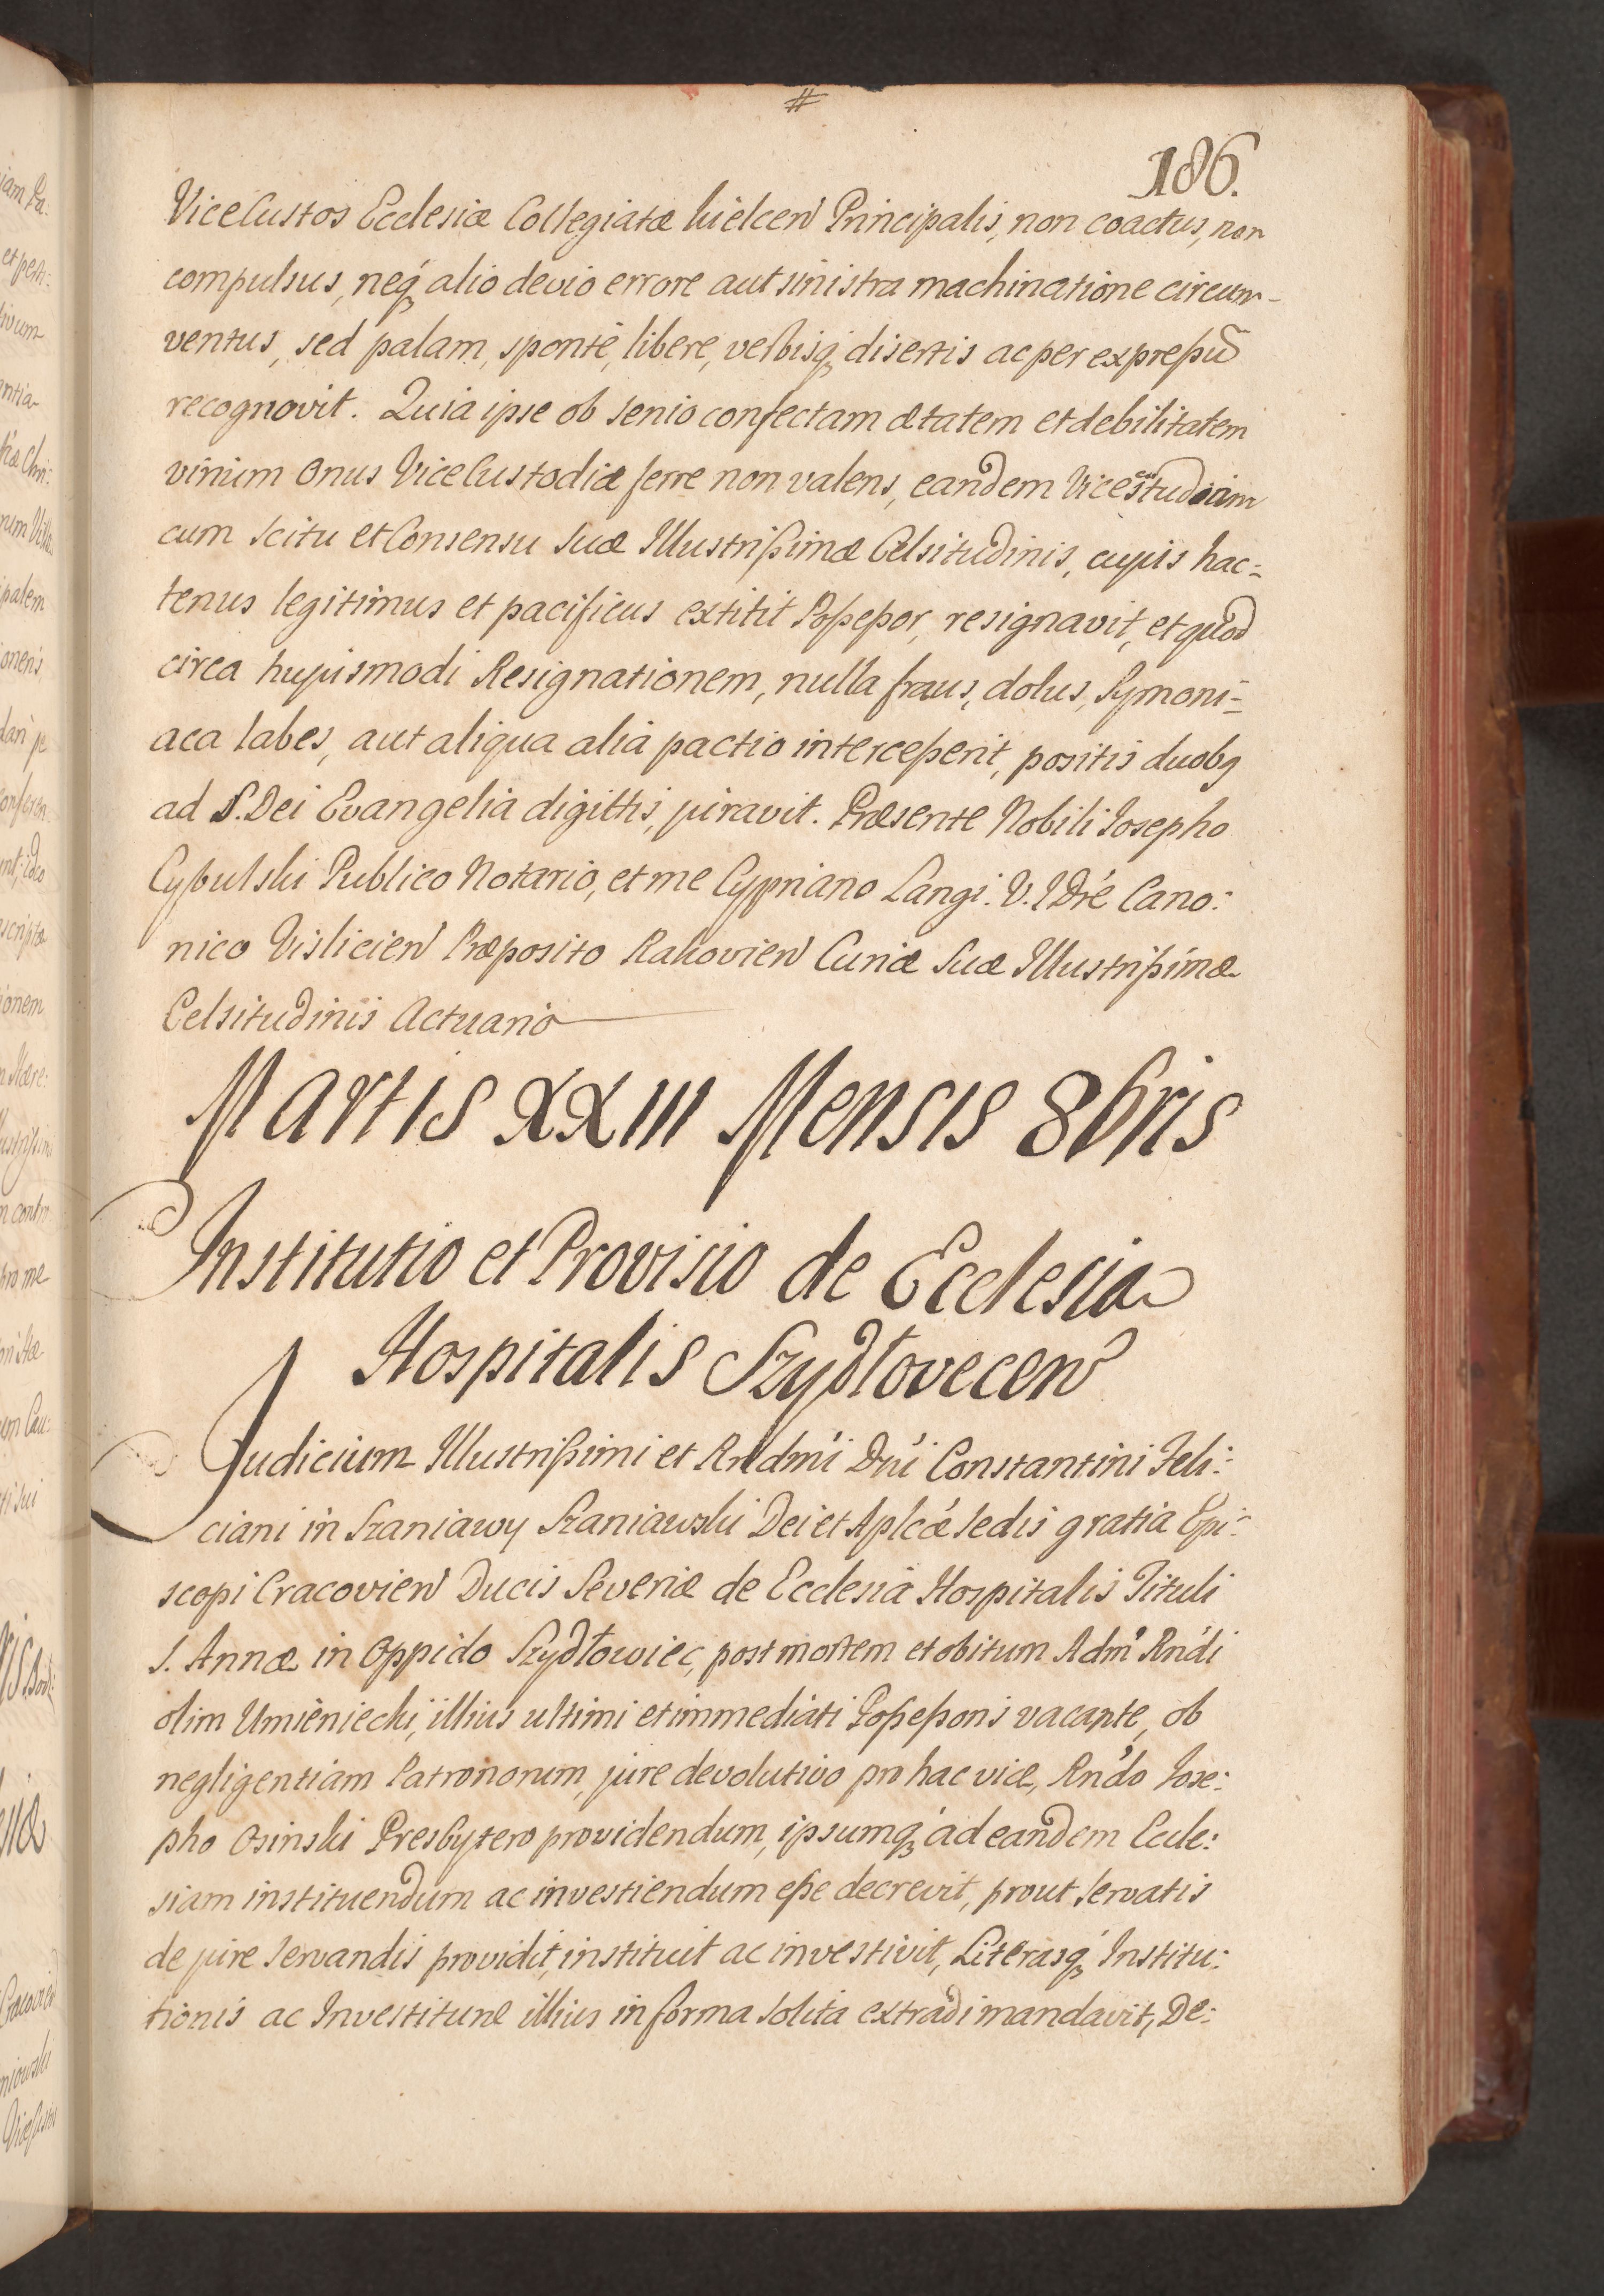 #
186.
ViceCustos Ecclesiæ Collegiatæ Kielcen Principalis, non coactus, non
compulsus, neq́ꝫ alio devio errore aut sinistra machinatione circum-
ventus, sed palam, sponté, libere, verbisqꝫ disertis ac per expreßũ
recognovit. Quia ipse ob senio confectam ætatem et debilitatem
virium onus ViceCustodiæ ferre non valens, eandem Vicecustodiam
cum scitu et Consensu Suæ Illustrißimæ Celsitudinis, cujus hac=
tenus legitimus et pacificus extitit Poßeßor, resignavit, et quod
circa hujusmodi Resignationem, nulla fraus, dolus, Symoni=
aca labes, aut aliqua alia pactio interceßerit, positis duobq
ad S. Dei Evangelia digittis, juravit. Præsente Nobili Iosepho
Cybulski Publico Notario, et me Cypriano Langi. V. I Dré Cano:
nico Vislicien Præposito Rakovien Curiæ Suæ Illustrißimæ
Celsitudinis Actuario
Martis XXIII Mensis 8bris
Institutio et Provisio de Ecclesia
Hospitalis Szydłovecen
Judicium Illustrißimi et Rndm̃i Dńi Constantini Feli:
ciani in Szaniawy Szaniawski Dei et Aplcæ Sedis gratia Epi:
scopi Cracovien Ducis Severiæ de Ecclesiâ Hospitalis Tituli
S. Annæ in Oppido Szydłowiec, post mortem et obitum Adm̃ Rńdi
olim Umieniecki, illius ultimi et immediati Poßeßoris vacante, ob
negligentiam Patronorum, jure devolutivo pro hac vice, Rńdo Iose:
pho Osinski Presbytero providendum, ipsumqꝫ ad eandem Eccle:
siam instituendum ac investiendum eße decrevit, prout servatis
de jure servandis providit, instituit ac investivit, Literasq́ꝫ Institu:
tionis ac Investituræ illius in forma solita extradi mandavit, De: